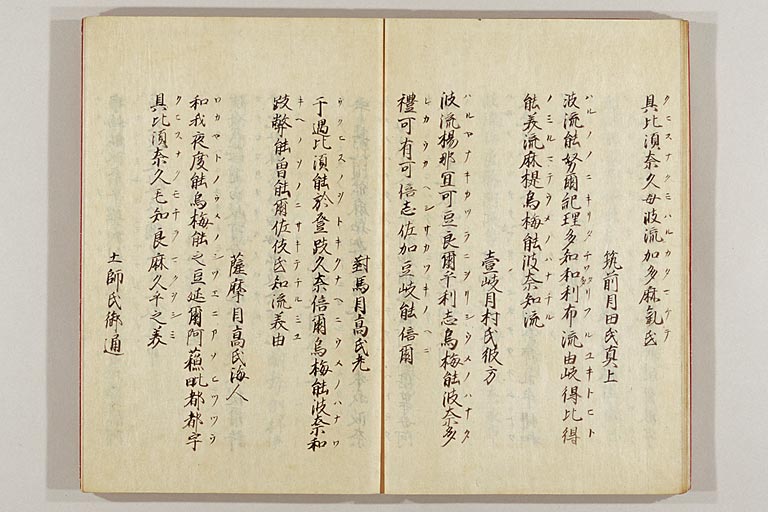 具比須奈久母波流加多麻氣弖
クヒスナクモハルカタマケテ
筑前目田氏真上
波流能努爾紀理多和和利布流由岐得比得
ハルノノニキリタチワタリフルユキトヒト
能美流麻提烏梅能波奈知流
ノミルマテウメノハナチル
壹岐目村氏彼方
波流楊那宜可豆良爾乎利志烏梅能波奈多
ハルヤナキカツラニヲリシウメノハナタ
禮可有可倍志佐加豆岐能倍爾
レカウカヘシサカツキノヘニ
對馬目高氏老
于遇比須能於登跂久奈倍爾烏梅能波奈和
ウクヒスノヲトキクナヘニウメノハナワ
跂弊能曽能爾佐伎弖知流美由
キヘノソノニサキテチルミユ
薩摩目高氏海人
和我夜度能烏梅能之豆延爾阿蘓毗都都宇
ワカヤトノウメノシツエニアソヒツツウ
具比須奈久毛知良麻久乎之美
クヒスナクモチラマクヲシミ
土師氏御通